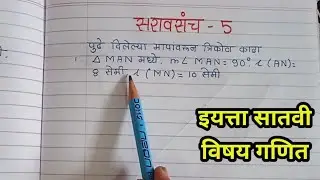 सरावसंच - 5
पुढे दिलेल्या मापावरून त्रिकोण काढा
△ MAN मध्ये, m∠ MAN = 90° l (AN) =
8 सेमी l (MN) = 10 सेमी
इयत्ता सातवी
विषय गणित